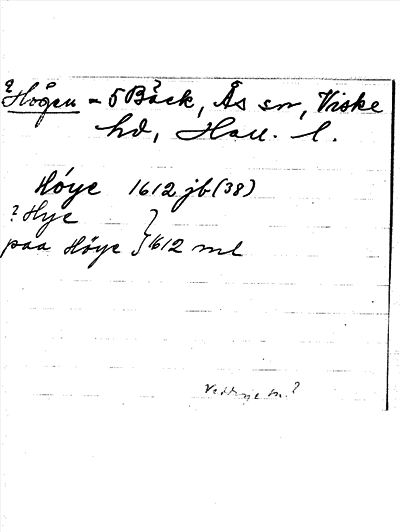 ? Högen = 5 Bäck, Ås sn, Viske
hd, Hall. l.
Höye 1612 jb (38)
? Hye
paa Höye } 1612 ml